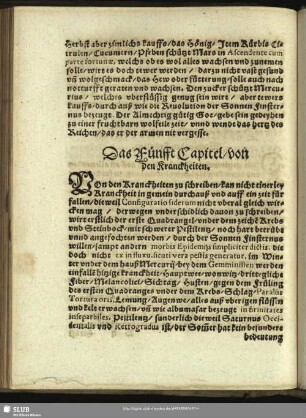 Herbst aber zimlichs kauffs/das Hönig/Item Kürbis Ci-
trulen/Cucumern/Pfeben schützt Mars in Ascendente cum
parte fortunæ, welchs ob es wol alles wachsen vnd zunemen
solle/wirt es doch tewer werden / darzu nicht vast gesund
vñ wolgschmack/das Hew oder fütterung/solle auch nach
notturfft geraten vnd wachsen. Den zucker schützt Mercu-
rius / welches vberflüssig genug sein wirt / aber tewers
kauffs/durch auß wie die Reuolution der Sonnen Finster-
nus bezeugt. Der Almechtig gütig Got/gebe sein gedeyhen
zu einer fruchtbarn wolfeiln zeit/vnnd wende das hertz des
Reichen/das er der armen nit vergesse.
Das Fünfft Capitel/von
den Kranckheiten.
VOn den Kranckheiten zu schreiben/kan nicht einerley
Kranckheit in gemein durchauß vnd auff ein zeit für
fallen/dieweil Configuratio siderum nicht vberal gleich wir-
cken mag / der wegen vnderschidlich dauon zu schreiben/
wirt erstlich der erste Quadrangl/vnder dem zeichē Krebs
vnd Steinbock/mit schwerer Pestilentz/ noch hart betrübt
vnnd angefochten werden / durch der Sonnen Finsternus
willen/ morbi Epidemij simpliciter dicti, die
doch nicht ex influxu, sicuti vera pestis generatur, im Win-
ter vnder dem hauß Mercurij/bey dem Geminnissen werden
einfalt hitzige kranckheit/Hauptwee/wonwitz/dritegliche
Fiber/Melancolici/Sichtag/Husten/gegen dem Früling
des ersten Quadranges vnder dem Krebs/Schlag/Paralisi
Tortura oris, Lemung/Augenwe/alles auß vbrigen flüssen
vnd kelte erwachsen/vñ wie albumasar bezeugt in trinitates
inseparibiles, Pestilentz / sunderlich dieweil Saturnus Occi-
dentalis vnd Retrogradus ist/der Som̄er hat kein besondere
bedeutung
SLUB